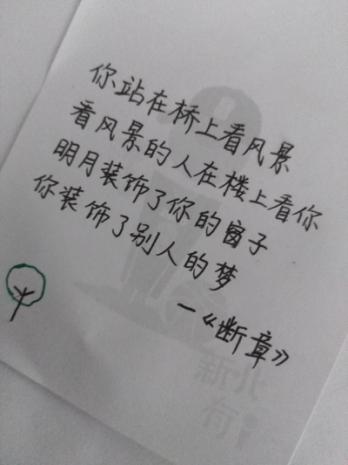 你站在桥上看风景
看风景的人在楼上看你
明月装饰了你的窗子
你装饰了别人的梦
—《断章》
新北
有